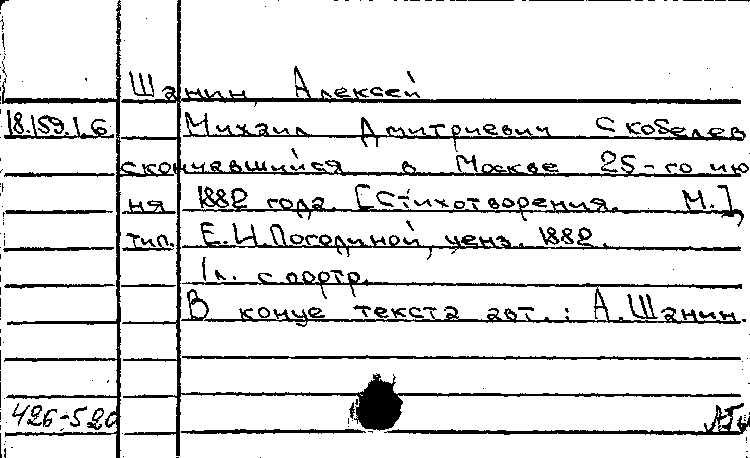 Шанин, Алексей
18.159.1.6 Михаил Дмитриевич Скобелев
скончавшийся в Москве 25-го ию
ня 1882 года. [Стихотворения. М.],
тип. Е.И.Погодиной, ценз. 1882.
1л. с портр.
В конце текста авт.: А.Шанин.
426-520